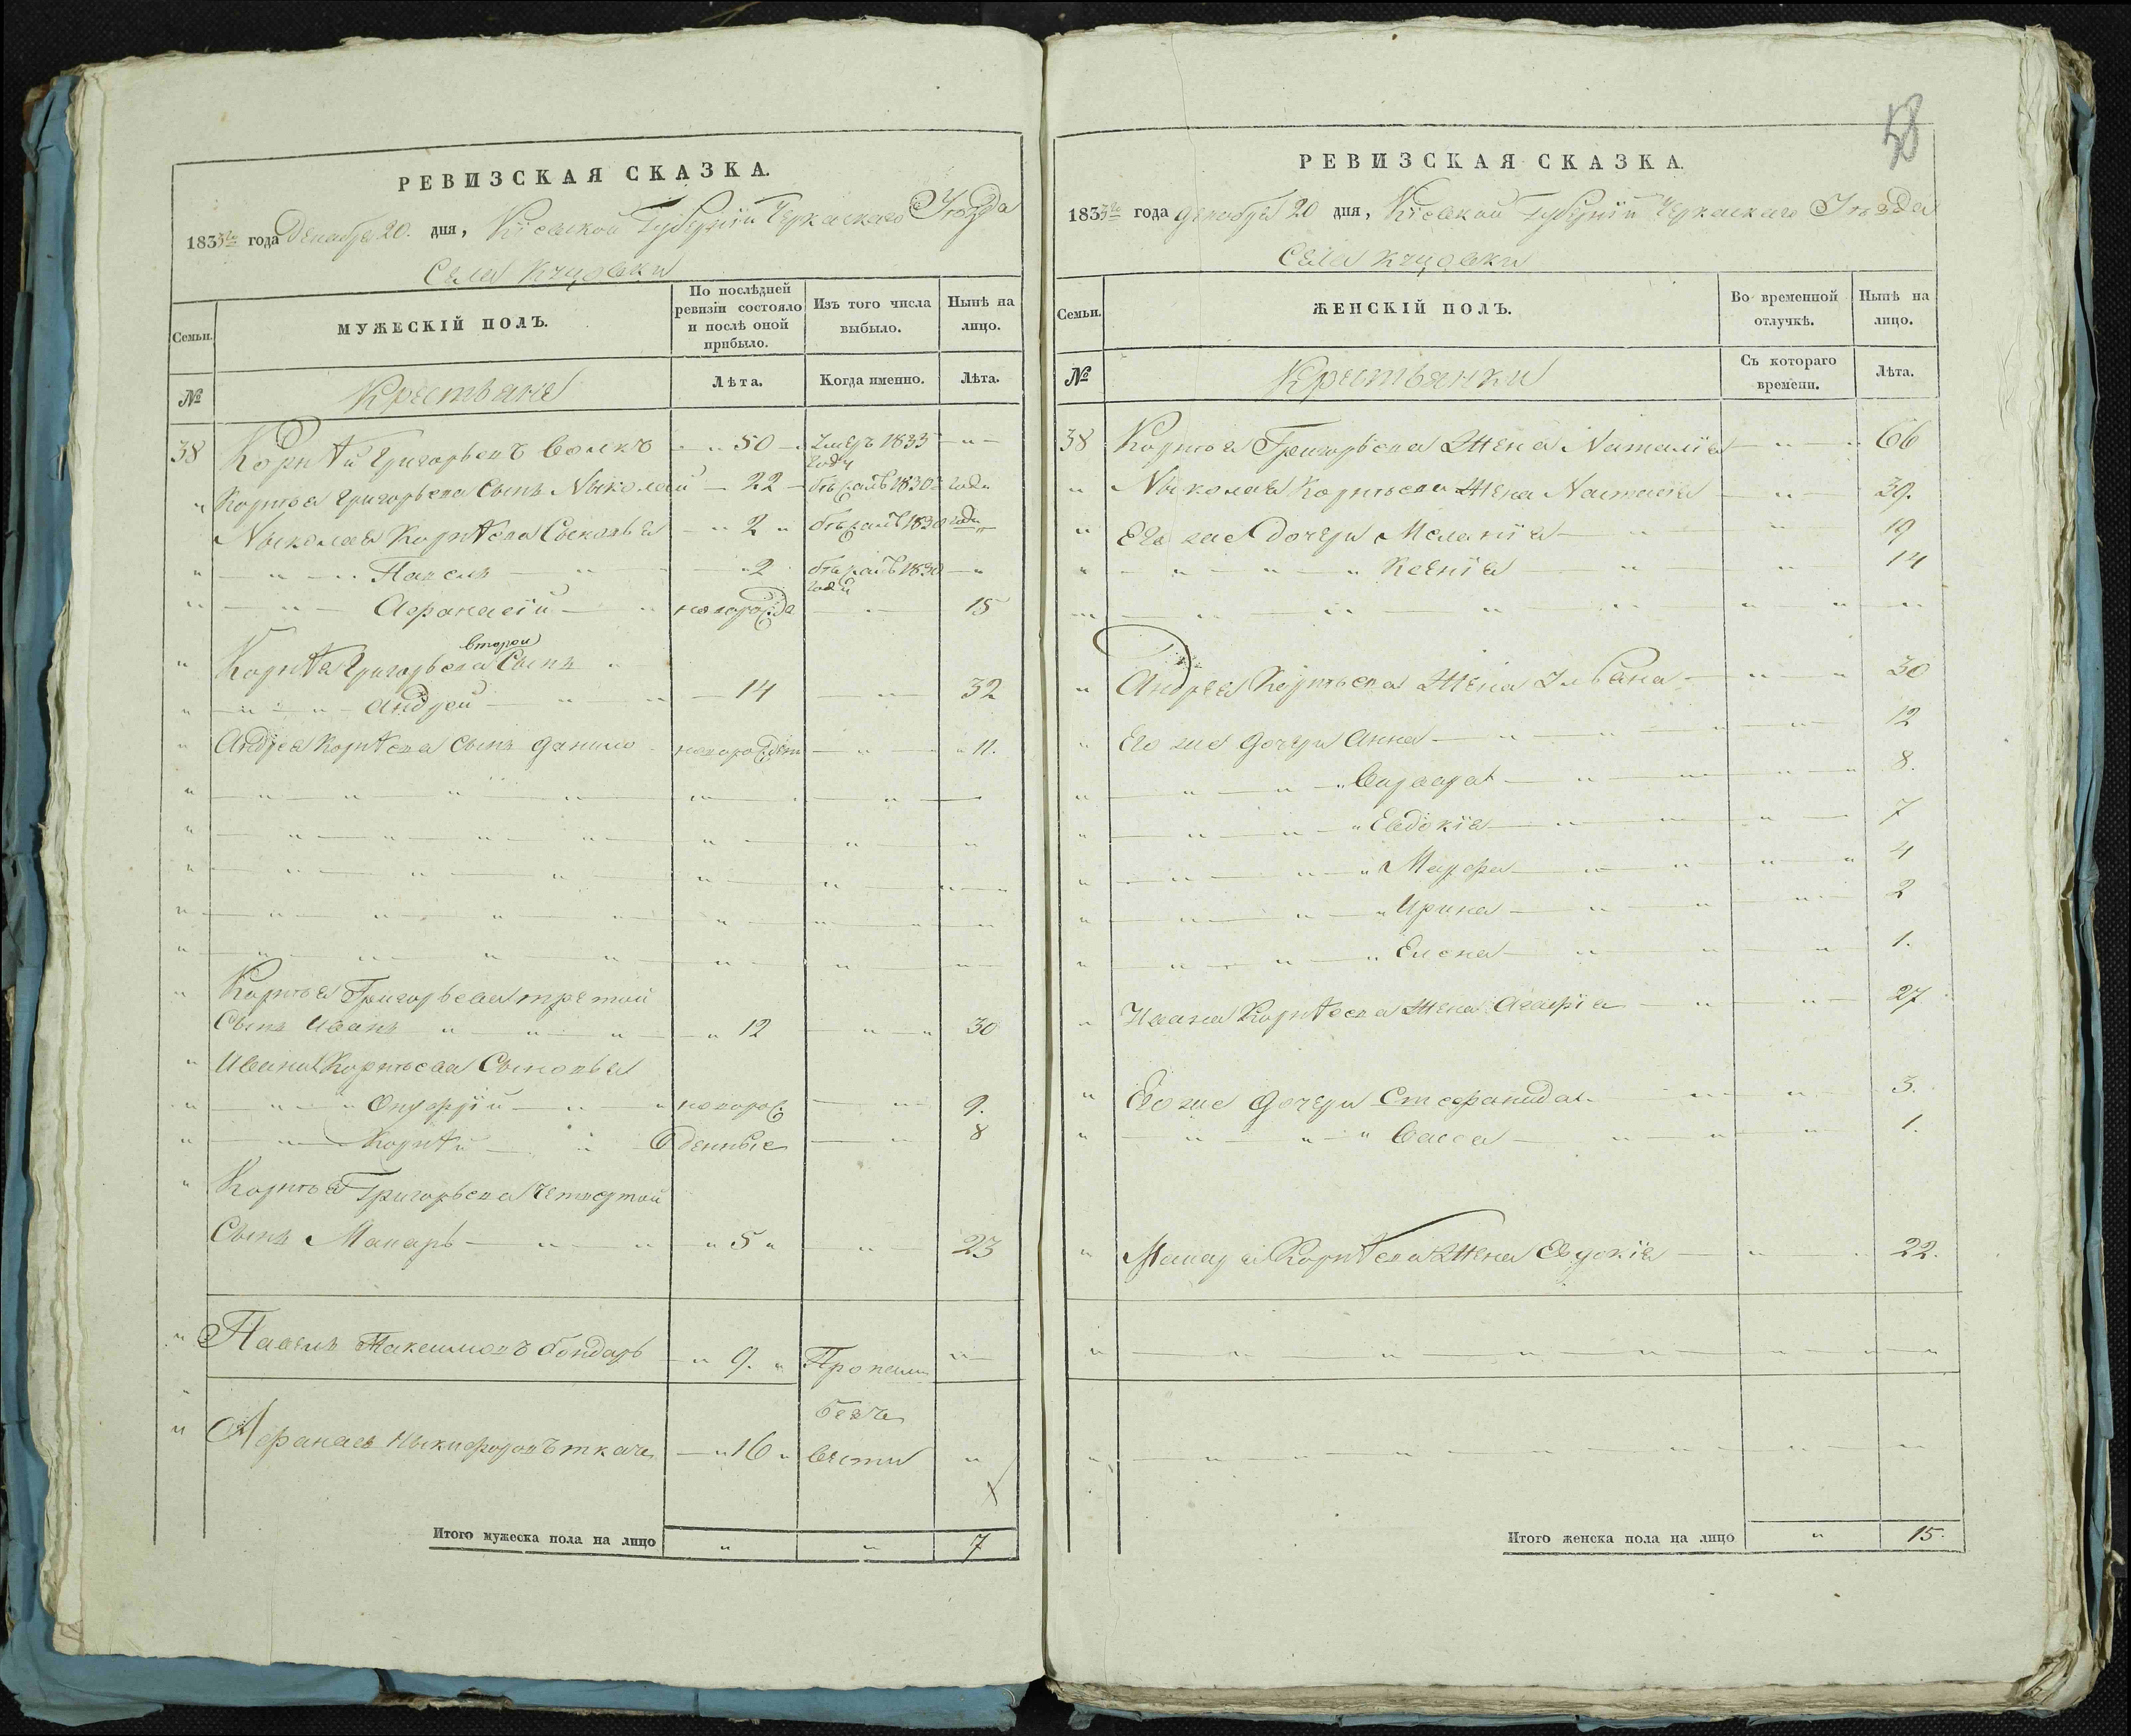 РЕВИЗСКАЯ СКАЗКА.
183 года Декабря 20. дня, Кіевской Губерніи Черкаскаго Уезда
Села
Семьи.
МУЖЕСКІЙ ПОЛЪ.
По послѣдней ревизіи состояло и послѣ оной прибыло.
Изъ того числа выбыло.
Нынѣ на лицо.
№
Крестьяне
Лѣта.
Когда именно.
Лѣта.
38 Корнѣй Григорьевъ Волкъ 50 Умеръ 1833 году
Корнѣя Григорьева Сынъ Николай 22 1830 году
Николая Корнѣева Сыновья 2 1830 году
Павелъ 2 1830 году
Афанасій новорожде 15
Корнѣя Григорьева второй Сынъ
Андрей 14 32
Андрея Корнѣева Сынъ Данило новорожден 11.
Корнѣя Григорьева третой
Сынъ Иванъ 12 30
Ивана Корнѣева Сыновья
Онуфрій новорож 9.
Корнѣй денные 8
Корнѣя Григорьева Четвертой
Сынъ Макаръ 5 23
Павелъ Максимовъ бондарь 9. Пропали
безъ
Афанасъ Никифоровъ ткачъ 16 вести
Итого мужеска пола на лицо 7
58
РЕВИЗСКАЯ СКАЗКА.
183 года Декабря 20 дня, Кіевской Губерніи Черкаскаго Уезда
Села
Семьи.
ЖЕНСКІЙ ПОЛЪ.
Во временной отлучкѣ.
Нынѣ на лицо.
№
Крестьянки
Съ котораго времени.
Лѣта.
38 Корнѣя Григорьева Жена Наталія 66
Николая Корнѣева Жена Настасія 39.
Его же Дочери Меланія 19
Ксенія 14
Андрея Корнѣева Жена Ульяна 30
Его же Дочери Анна 12
Варвара 8.
Евдокія 7
Марфа 4
Ирина 2
Елена 1.
Ивана Корнѣева Жена Агафія 27
Его же Дочери Стефанида 3.
Васса 1.
Макара Корнѣева Жена Евдокія 22.
Итого женска пола на лицо 15.